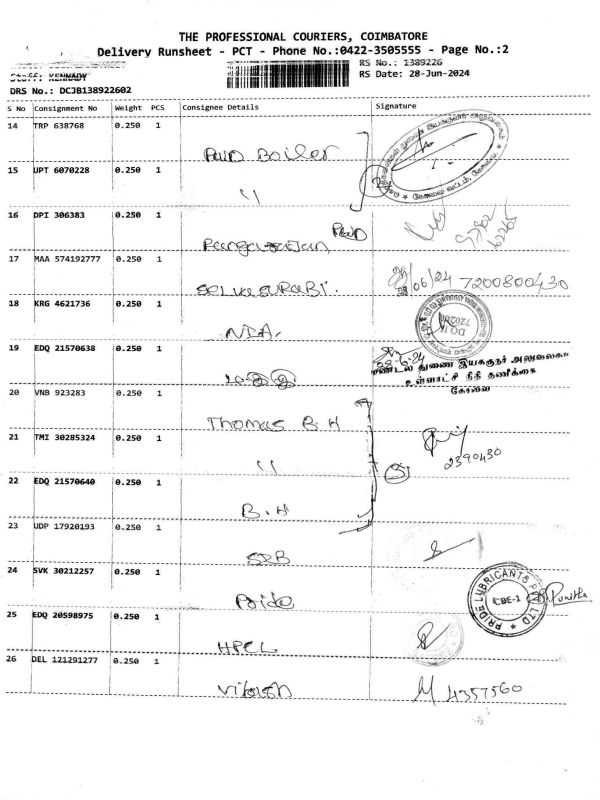 THE PROFESSIONAL COURIERS, COIMBATORE
Delivery Runsheet - PCT - Phone No.:0422-3505555 - Page No.:2
RS No.: 1389226
Staff: KENNADY
RS Date: 28-Jun-2024
DRS No.: DCJB138922602
S No Consignment No Weight PCS Consignee Details Signature
14 TRP 638768 0.250 1
Boiler
15 UPT 6070228 0.250 1
"
16 DPI 306383 0.250 1
17 MAA 574192777 0.250 1
SELVASURABI. 28/06/24 7200800430
18 KRG 4621736 0.250 1
NIA.
19 EDQ 21570638 0.250 1
28-6-24
மண்டல துணை இயக்குநர் அலுவலகம்
உள்ளாட்சி நிதி தணிக்கை
கோவை
20 VNB 923283 0.250 1
Thomas B.H
21 TMI 30285324 0.250 1
" 2390430
22 EDQ 21570640 0.250 1
B.H
23 UDP 17920193 0.250 1
SRB
24 SVK 30212257 0.250 1
Pride
PRIDE LUBRICANTS PVT LTD
CBE-1
Punitha
25 EDQ 20598975 0.250 1
HPCL
26 DEL 121291277 0.250 1
Vikash 4357560